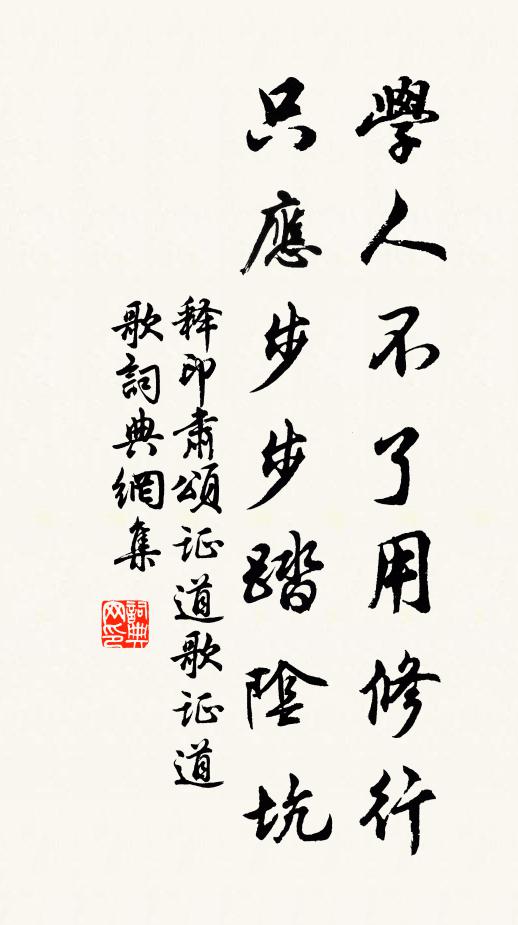 學人不了用修行
只應步步踏陰坑
释印肅頌证道歌证道
歌詞典網集
詞典
网印